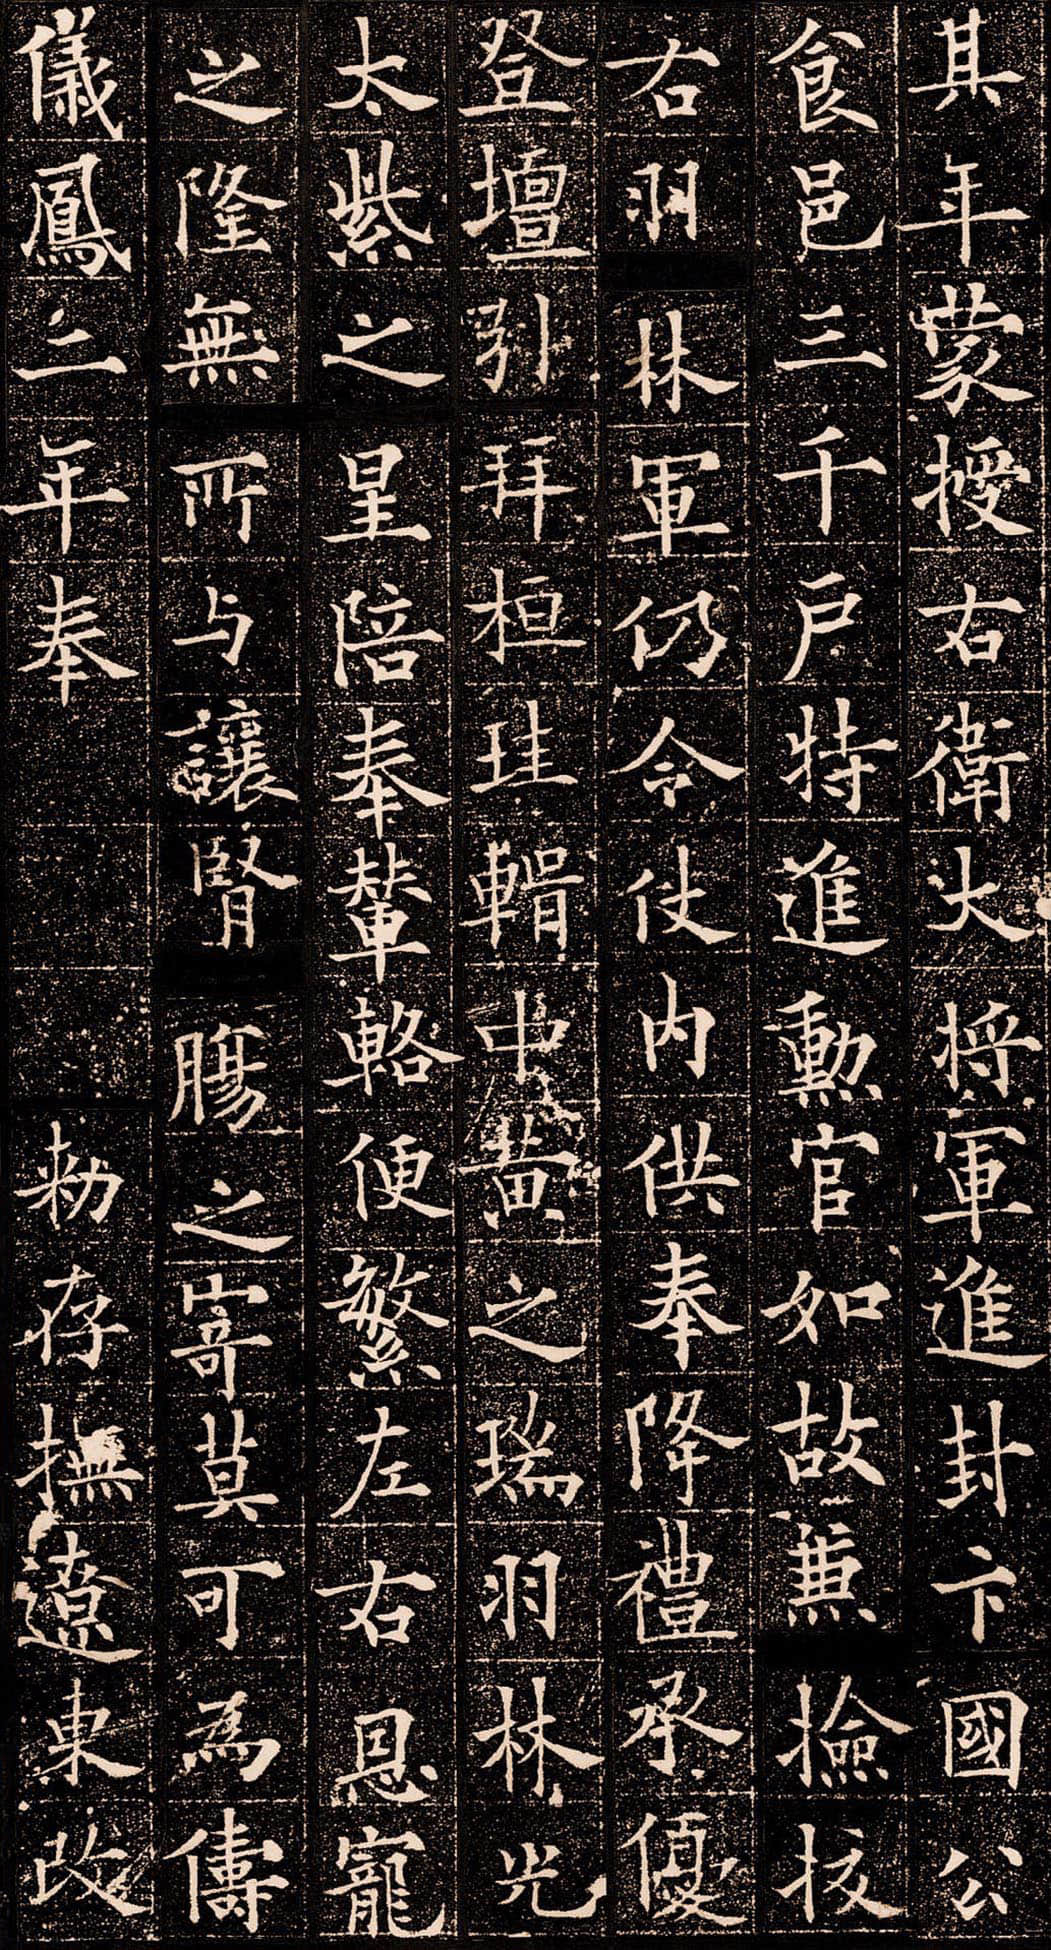 其年蒙授右衛大将軍進封卞國公
食邑三千戶特進勳官如故兼撿挍
右羽林軍仍令仗内供奉降禮承優
登壇引拜桓珪輯中黃之瑞羽林光
太紫之星陪奉輦輅便繁左右恩寵
之隆無所与讓腎腸之寄莫可為儔
儀鳳二年奉勅存撫遼東改